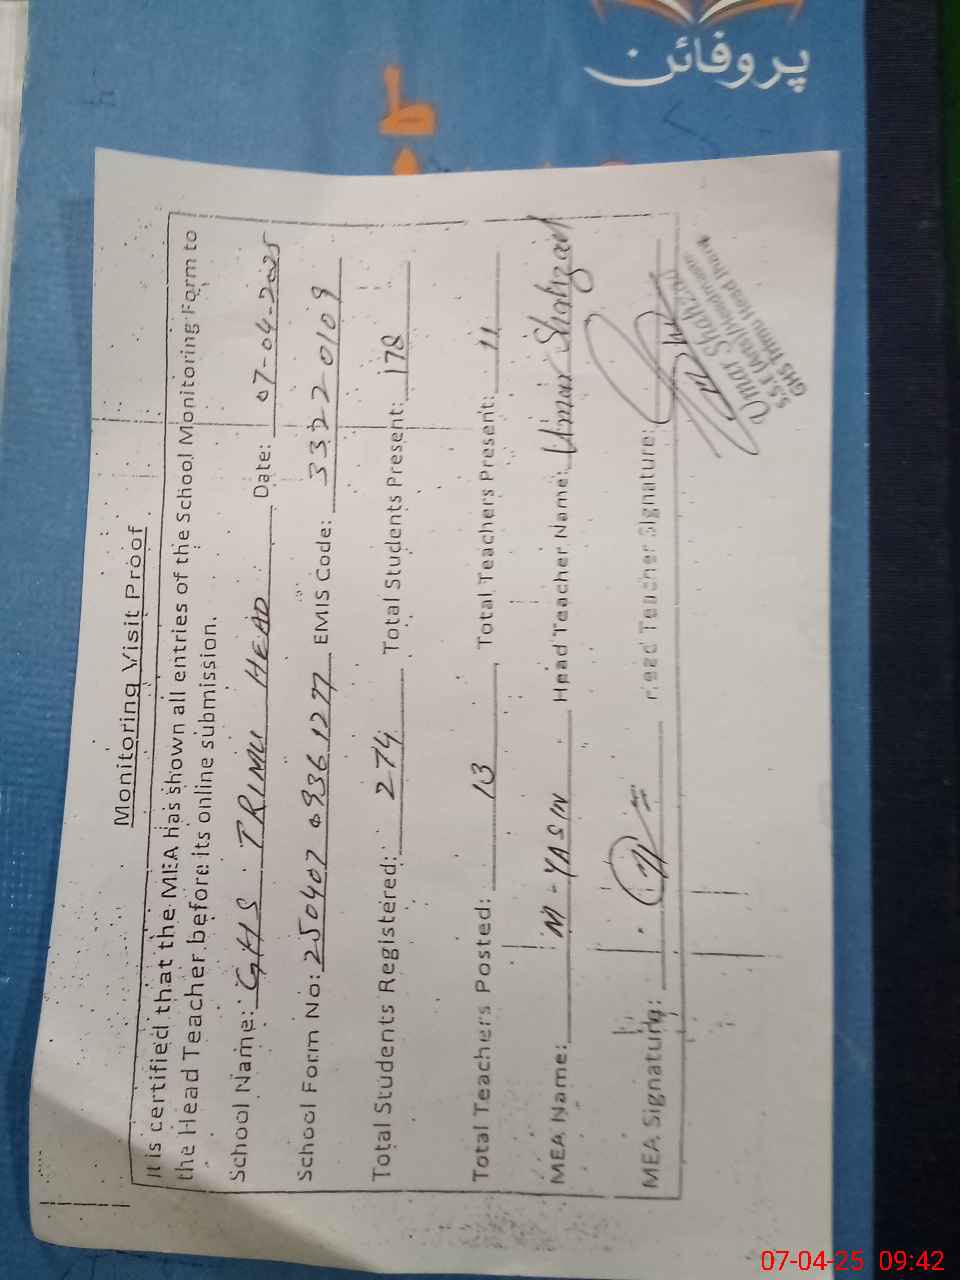 پروفائن
Monitoring Visit Proof
It is certified that the MEA has shown all entries of the School Monitoring Form to
the Head Teacher before its online submission.
School Name: GHS TRIMU HEAD Date: 07-04-2025
School Form No: 25040709361277 EMIS Code: 33220109
Total Students Registered: 274 Total Students Present: 178
Total Teachers Posted: 13 Total Teachers Present: 11
MEA Name: M-YASIN Head Teacher Name: Umar Shahzad
MEA Signature: Head Teacher Signature:
Umar Shahzad
S.S.E (Arts)/Headmaster
GHS Trimu Head Jhang
07-04-25 09:42